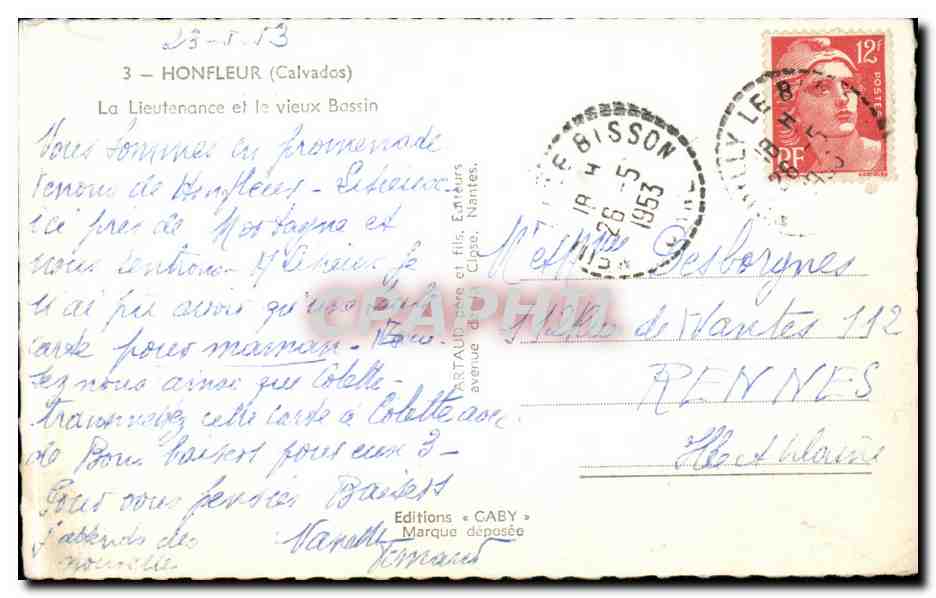 23-5-53
3 - HONFLEUR (Calvados)
La Lieutenance et le vieux Bassin
Vous sommes en promenade
venons de Honfleur - Lisieux -
ici près de Mortagne et
nous rentrons - A Lisieux je
n'ai pu avoir qu'une
carte pour maman -
nous ainsi que Colette -
transmettez cette carte à Colette avec
de Bons baisers pour eux 3 -
Pour vous pensées Baisers
j'attends des
nouvelles
Fernand
Editions « GABY »
Marque déposée
ARTAUD père et fils, Editeurs
avenue de la Close, Nantes.
LE BISSON
18 H
26 -5
1953
12F
POSTES
RF
LLY LE B
18 H
26 -5
Desborgnes
de Nantes 112
RENNES
Ille et Vilaine
CPAPHIL